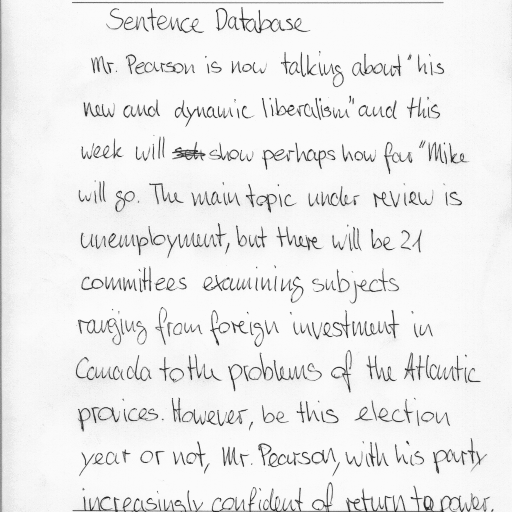 Sentence Database
Mr. Pearson is now talking about "his
new and dynamic liberalism" and this
week will show perhaps how far "Mike
will go. The main topic under review is
unemployment, but there will be 21
committees examining subjects
ranging from foreign investment in
Canada to the problems of the Atlantic
provices. However, be this election
year or not, Mr. Pearson, with his party
increasingly confident of return to power.